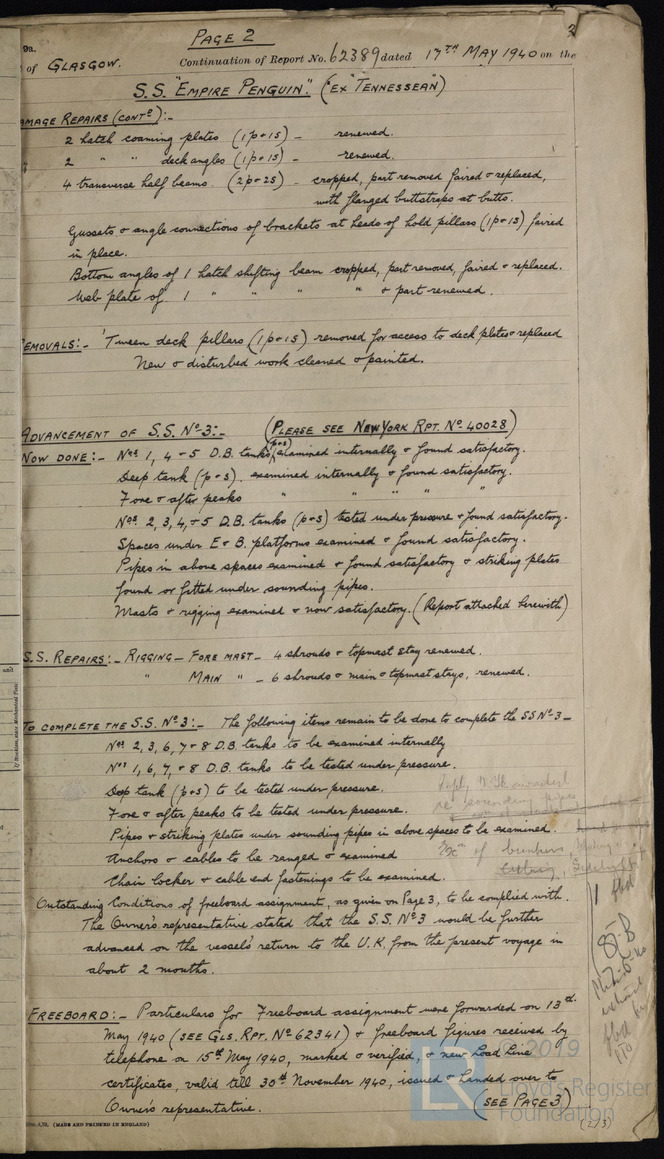 PAGE 2
2
9a.
of GLASGOW. Continuation of Report No. 62389 dated 17TH MAY 1940 on the
S.S. "EMPIRE PENGUIN" (EX "TENNESSEAN")
AMAGE REPAIRS (CONTD):-
2 hatch coaming plates (1p+1s) - renewed.
2 " " deck angles (1p+1s) - renewed.
4 transverse half beams (2p+2s) - cropped, part removed faired + replaced,
with flanged buttstraps at butts.
Gussets + angle connections of brackets at heads of hold pillars (1p+1s) faired
in place.
Bottom angles of 1 hatch shifting beam cropped, part removed, faired + replaced.
Web plate of 1 " " " " + part renewed.
EMOVALS:- 'Tween deck pillars (1p+1s) removed for access to deck plates + replaced
New + disturbed work cleaned + painted.
ADVANCEMENT OF S.S. No 3:- (PLEASE SEE NEW YORK RPT. No 40028)
NOW DONE:- Nos 1, 4 + 5 D.B. tanks (p+s) examined internally + found satisfactory.
Deep tank (p+s). examined internally + found satisfactory.
Fore + after peaks " " " "
Nos 2, 3, 4, + 5 D.B. tanks (p+s) tested under pressure + found satisfactory.
Spaces under E + B. platforms examined + found satisfactory.
Pipes in above spaces examined + found satisfactory + striking plates
found or fitted under sounding pipes.
Masts + rigging examined + now satisfactory. (Report attached herewith)
S.S. REPAIRS:- RIGGING - FORE MAST - 4 shrouds + topmast stay renewed.
" MAIN " - 6 shrouds + main + topmast stays, renewed.
TO COMPLETE THE S.S. No 3:- The following items remain to be done to complete the SS No 3 -
Nos 2, 3, 6, 7 + 8 D.B. tanks to be examined internally
Nos 1, 6, 7, + 8 D.B. tanks to be tested under pressure.
Deep tank (p+s) to be tested under pressure.
Fore + after peaks to be tested under pressure.
Pipes + striking plates under sounding pipes in above spaces to be examined.
Anchors + cables to be ranged + examined
Chain locker + cable end fastenings to be examined.
of bunkers,
Outstanding conditions of freeboard assignment, as given on Page 3, to be complied with.
The Owner's representative stated that the S.S. No 3 would be further
advanced on the vessel's return to the U.K. from the present voyage in
about 2 months.
FREEBOARD:- Particulars for Freeboard assignment were forwarded on 13th
May 1940 (SEE GLS. RPT. No 62341) + freeboard figures received by
telephone on 15th May 1940, marked + verified, + new Load Line
certificates, valid till 30th November 1940, issued + handed over to
Owner's representative. (SEE PAGE 3)
(2/3)
(MADE AND PRINTED IN ENGLAND)
© 2019
Lloyd's Register
Foundation